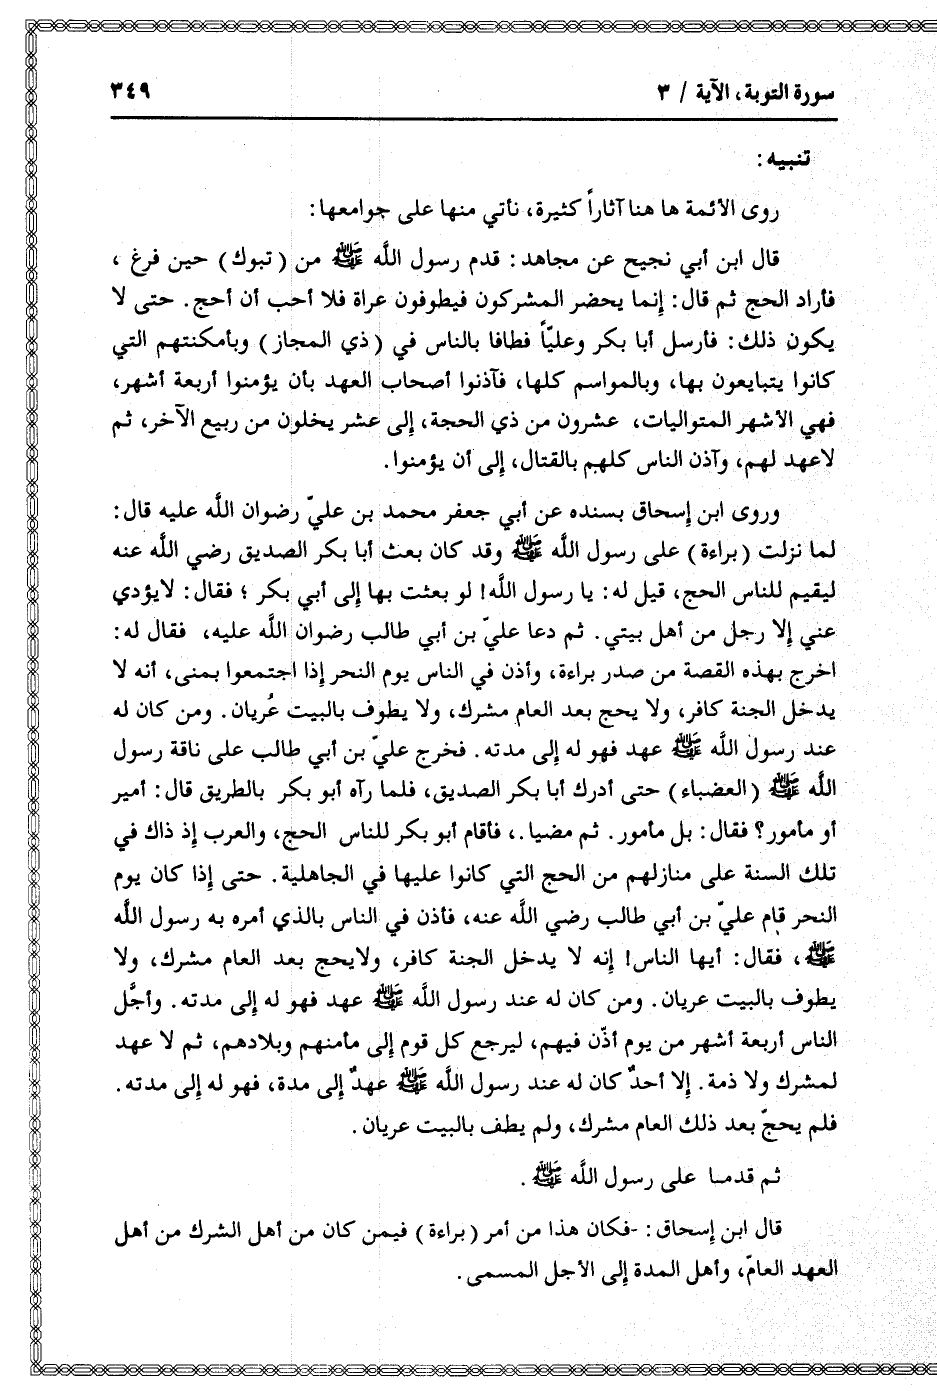 سورة التوبة، الآية / ٣
٣٤٩
تنبيه:
روى الأئمة ها هنا آثاراً كثيرة، نأتي منها على جوامعها:
قال ابن أبي نجيح عن مجاهد: قدم رسول اللَّه ﷺ من (تبوك) حين فرغ ،
فأراد الحج ثم قال: إنما يحضر المشركون فيطوفون عراة فلا أحب أن أحج. حتى لا
يكون ذلك: فأرسل أبا بكر وعليّاً فطافا بالناس في (ذي المجاز) وبأمكنتهم التي
كانوا يتبايعون بها، وبالمواسم كلها، فآذنوا أصحاب العهد بأن يؤمنوا أربعة أشهر،
فهي الأشهر المتواليات، عشرون من ذي الحجة، إلى عشر يخلون من ربيع الآخر، ثم
لاعهد لهم، وآذن الناس كلهم بالقتال، إلى أن يؤمنوا.
وروى ابن إسحاق بسنده عن أبي جعفر محمد بن عليّ رضوان اللَّه عليه قال:
لما نزلت (براءة) على رسول اللَّه ﷺ وقد كان بعث أبا بكر الصديق رضي اللَّه عنه
ليقيم للناس الحج، قيل له: يا رسول اللَّه! لو بعثت بها إلى أبي بكر ؛ فقال: لايؤدي
عني إلا رجل من أهل بيتي. ثم دعا عليّ بن أبي طالب رضوان اللَّه عليه، فقال له:
اخرج بهذه القصة من صدر براءة، وأذن في الناس يوم النحر إذا اجتمعوا بمنى، أنه لا
يدخل الجنة كافر، ولا يحج بعد العام مشرك، ولا يطوف بالبيت عُريان. ومن كان له
عند رسول اللَّه ﷺ عهد فهو له إلى مدته. فخرج عليّ بن أبي طالب على ناقة رسول
اللَّه ﷺ (العضباء) حتى أدرك أبا بكر الصديق، فلما رآه أبو بكر بالطريق قال: أمير
أو مأمور؟ فقال: بل مأمور. ثم مضيا.، فأقام أبو بكر للناس الحج، والعرب إذ ذاك في
تلك السنة على منازلهم من الحج التي كانوا عليها في الجاهلية. حتى إذا كان يوم
النحر قام عليّ بن أبي طالب رضي اللَّه عنه، فأذن في الناس بالذي أمره به رسول اللَّه
ﷺ، فقال: أيها الناس! إنه لا يدخل الجنة كافر، ولايحج بعد العام مشرك، ولا
يطوف بالبيت عريان. ومن كان له عند رسول اللَّه ﷺ عهد فهو له إلى مدته. وأجَّل
الناس أربعة أشهر من يوم أذّن فيهم، ليرجع كل قوم إلى مأمنهم وبلادهم، ثم لا عهد
لمشرك ولا ذمة. إلا أحدٌ كان له عند رسول اللَّه ﷺ عهدٌ إلى مدة، فهو له إلى مدته.
فلم يحجّ بعد ذلك العام مشرك، ولم يطف بالبيت عريان.
ثم قدما على رسول اللَّه ﷺ .
قال ابن إسحاق: -فكان هذا من أمر (براءة) فيمن كان من أهل الشرك من أهل
العهد العامّ، وأهل المدة إلى الأجل المسمى.